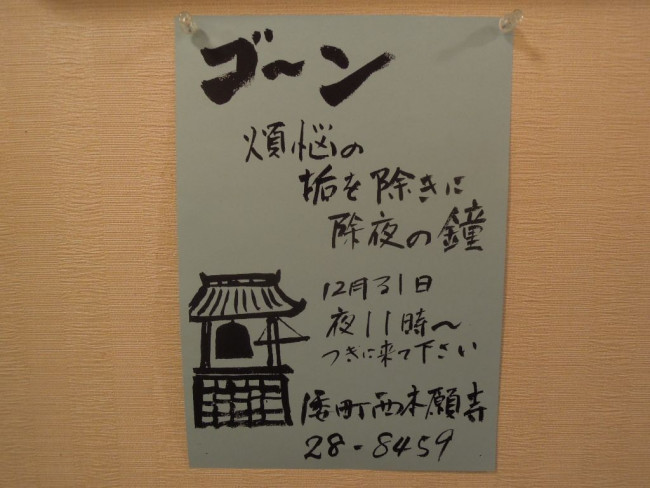 ゴ〜ン
煩悩の
垢を除きに
除夜の鐘
12月31日
夜11時〜
つきに来て下さい
倭町西本願寺
28-8459